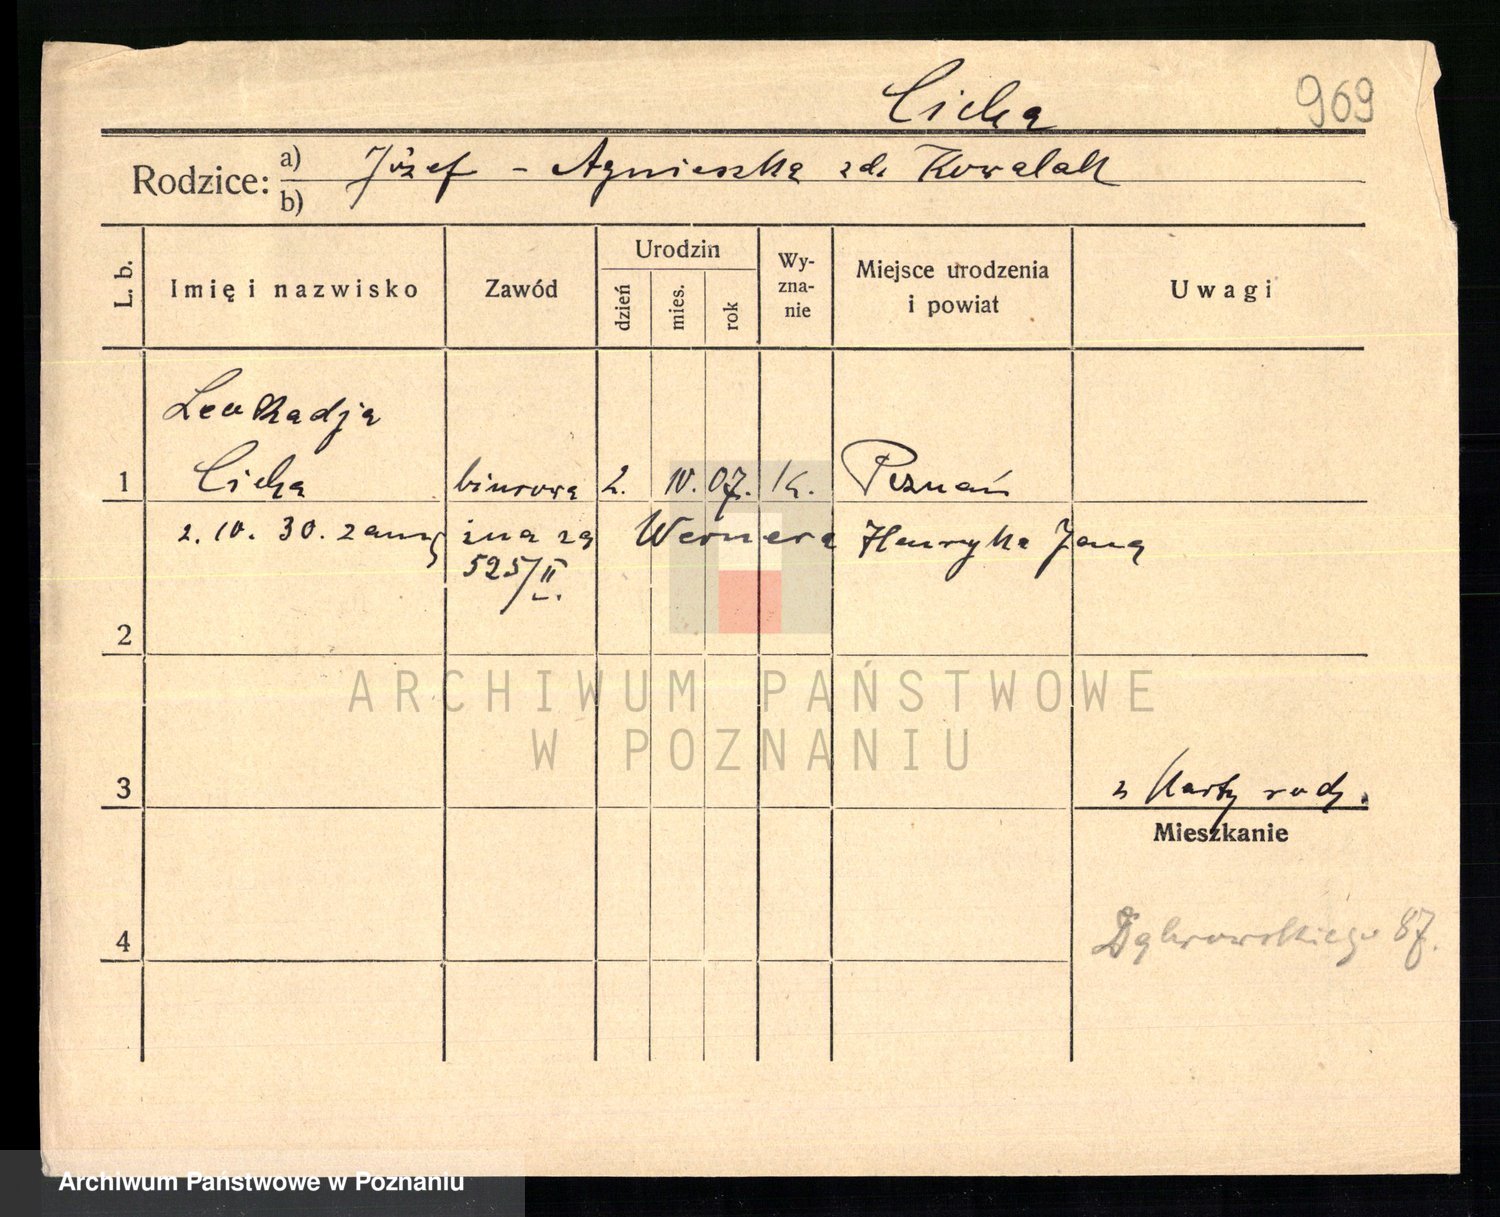 Cicha 969
Rodzice: a) Józef - Agnieszka zd. Kowalak
b)
L. b. Imię i nazwisko Zawód Urodzin dzień mies. rok Wy-zna-nie Miejsce urodzenia i powiat Uwagi
Leokadja
1 Cicha biurowa 2. IV. 07. K. Poznań
2. IV. 30. zamężna za Wernera Henryka Jana
525/II.
2
ARCHIWUM PAŃSTWOWE
W POZNANIU
3 z Karty rodz.
Mieszkanie
4 Dąbrowskiego 87.
Archiwum Państwowe w Poznaniu